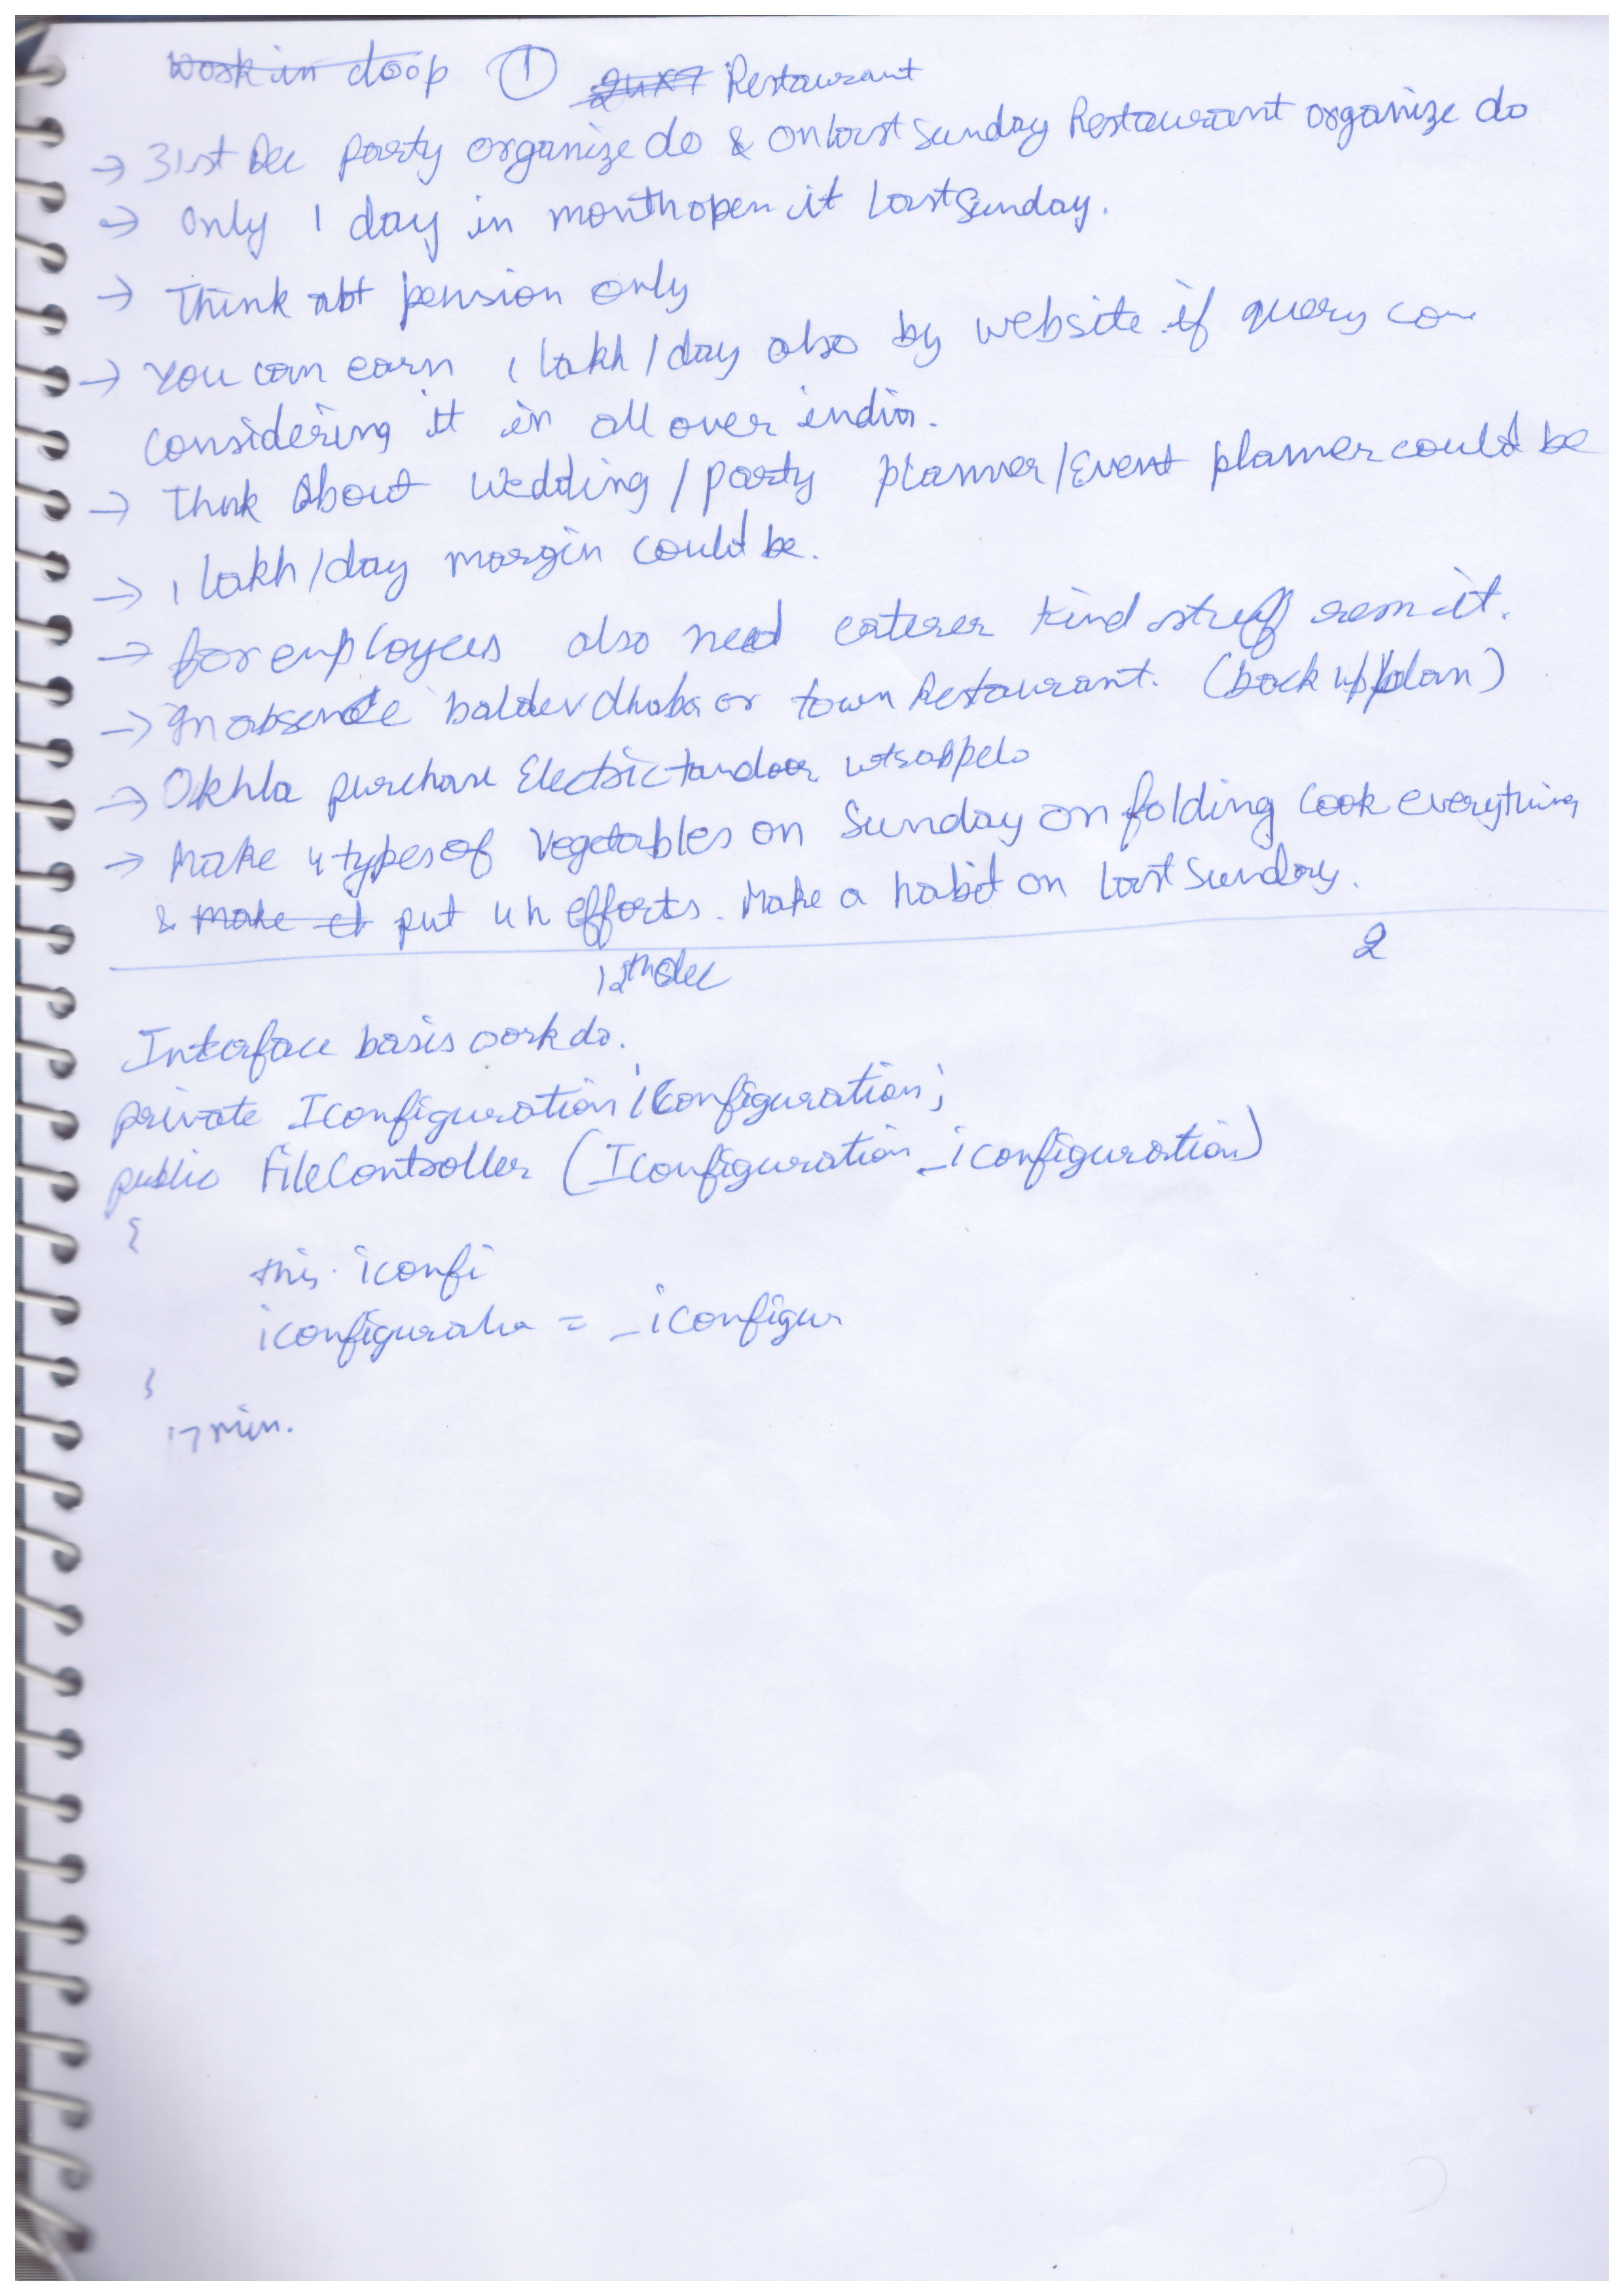 Work in doop ① 24x7 Restaurant
→ 31st Dec party organize do & on last sunday Restaurant organize do
→ Only 1 day in month open it last Sunday.
→ Think abt pension only
→ You can earn 1 lakh/day also by website if query com
considering it in all over india.
→ Think About wedding/party planner/Event planner could be
→ 1 lakh/day margin could be.
→ for employees also need caterer kind stuff it.
→ In absence baldev dhaba or town Restaurant. (back up plan)
→ Okhla purchase Electric tandoor
→ Make 4 types of Vegetables on Sunday on folding cook everything
& make it put 4 h efforts. Make a habit on last Sunday.
12th dec 2
Interface basis work do.
private IConfiguration iConfiguration;
public FileController (IConfiguration _iconfiguration)
{
this. iconfi
iconfiguratio = _iconfigur
}
17 min.